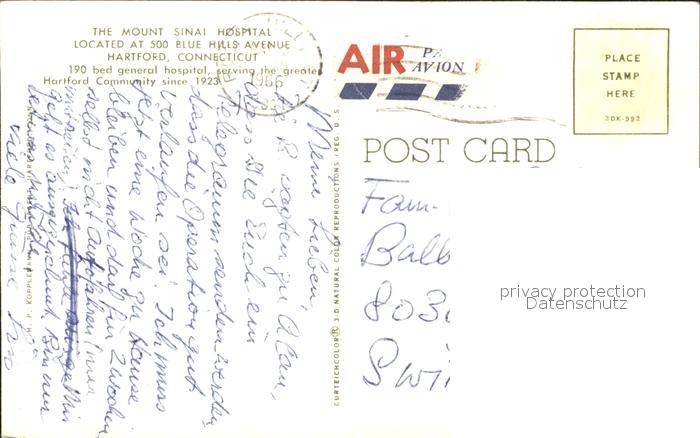 THE MOUNT SINAI HOSPITAL
LOCATED AT 500 BLUE HILLS AVENUE
HARTFORD, CONNECTICUT
190 bed general hospital, serving the greater
Hartford Community since 1923
1966
AIR
PAR AVION
PLACE
STAMP
HERE
3DK-992
POST CARD
CURTEICHCOLOR® 3-D NATURAL COLOR REPRODUCTIONS (REG. U.S.
Meine Lieben,
B. sagten zu Alan,
dass sie Euch ein
Telegramm senden werden
dass die Operation gut
verlaufen sei. Ich muss
jetzt eine Woche zu Hause
bleiben und darf in 2 Wochen
selbst nicht autofahren (nur
mitfahren).
geht es ausgezeichnet
Viele Grüsse
Fam.
Balb
803
Swi
privacy protection
Datenschutz